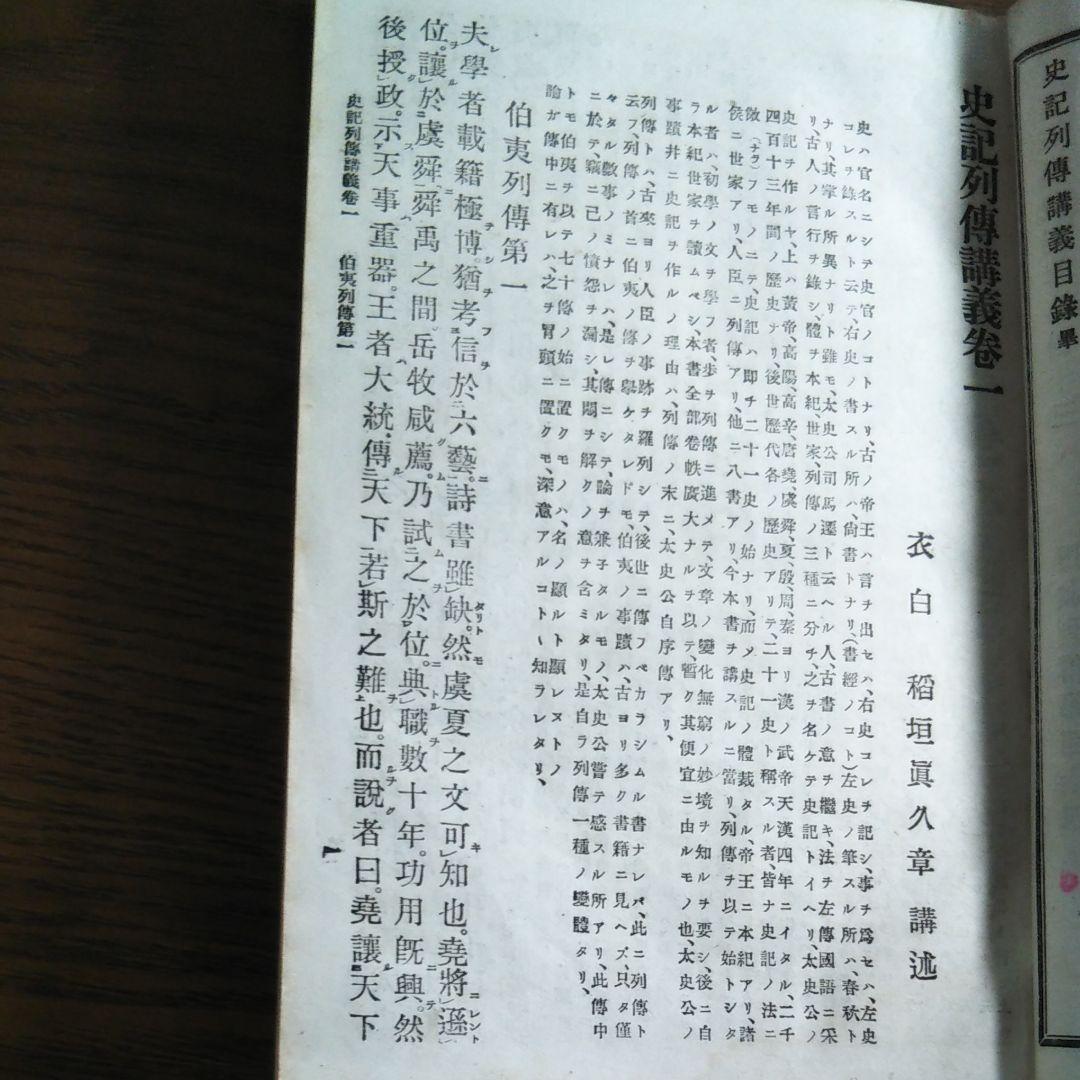 史記列傳講義目錄畢
史記列傳講義卷一
衣白 稻垣眞久章 講述
史ハ官名ニシテ史官ノコトナリ、古ノ帝王ハ言チ出セハ、右史コレチ記シ、事チ爲セハ、左史
コレチ錄スルト云テ、右史ノ書スル所ハ、尙書トナリ、(書經ノコト)左史ノ筆スル所ハ、春秋ト
ナリ、其掌ル所異ナリト雖モ、太史公司馬遷ト云ヘル人、古書ノ意チ繼キ、法チ左傳國語ニ采
リ、古人ノ言行チ錄シ、體チ本紀、世家、列傳ノ三種ニ分チ、之チ名ケテ史記トイヘリ、太史公ノ
史記チ作ルヤ、上ハ黃帝、高陽、高辛、唐堯、虞舜、夏、殷、周、秦ヨリ漢ノ武帝天漢四年ニイタル、二千
四百十三年間ノ歷史ナリ、後世歷代各ノ歷史アリテ、二十一史ト稱スル者、皆ナ史記ノ法ニ
倣(ナラ)フモノニテ、史記ハ卽チ二十一史ノ始ナリ、而メ史記ノ體裁タル、帝王ニ本紀アリ、諸
侯ニ世家アリ、人臣ニ列傳アリ、他ニ八書アリ、今本書チ講スルニ當リ、列傳チ以テ始トシタ
ル者ハ、初學ノ文チ學フ者、步チ列傳ニ進メテ、文章ノ變化無窮ノ妙境チ知ルチ要シ、後ニ自
ラ本紀世家チ讀ムベシ、本書全部卷帙廣大ナルチ以テ、暫ク其便宜ニ由ルモノ也、太史公ノ
事蹟井ニ史記チ作ルノ理由ハ、列傳ノ末ニ、太史公自序傳アリ、
列傳トハ、古來ヨリ人臣ノ事跡チ羅列シテ、後世ニ傳フベカラシムル書ナレバ、此ニ列傳ト
云フ、列傳ノ首ニ伯夷ノ傳チ擧ケタレドモ、伯夷ノ事蹟ハ、古ヨリ多ク書籍ニ見ヘズ、只タ僅
々タル數事ノミナレハ、是レ傳ニシテ、論チ兼子タルモノ、太史公嘗テ感スル所アリ、此傳中
ニ於テ、竊ニ己ノ憤怨チ漏シ、其悶チ解クノ意チ含ミタリ、是自ラ列傳一種ノ變體タリ、
トモ伯夷チ以テ七十傳ノ始ニ置クモノハ、名ノ顯ルト顯レヌトノ
論ガ傳中ニ有レハ、之チ冐頭ニ置クモ、深意アルコトヽ知ラレタリ、
伯夷列傳第一
夫學者載籍極博。猶考信於六藝。詩書雖缺。然虞夏之文可知也。堯將遜
位。讓於虞舜。舜禹之間。岳牧咸薦。乃試之於位。典職數十年。功用旣興。然
後授政。示天下重器。王者大統。傳天下若斯之難也。而說者曰。堯讓天下
史記列傳講義卷一 伯夷列傳第一
一